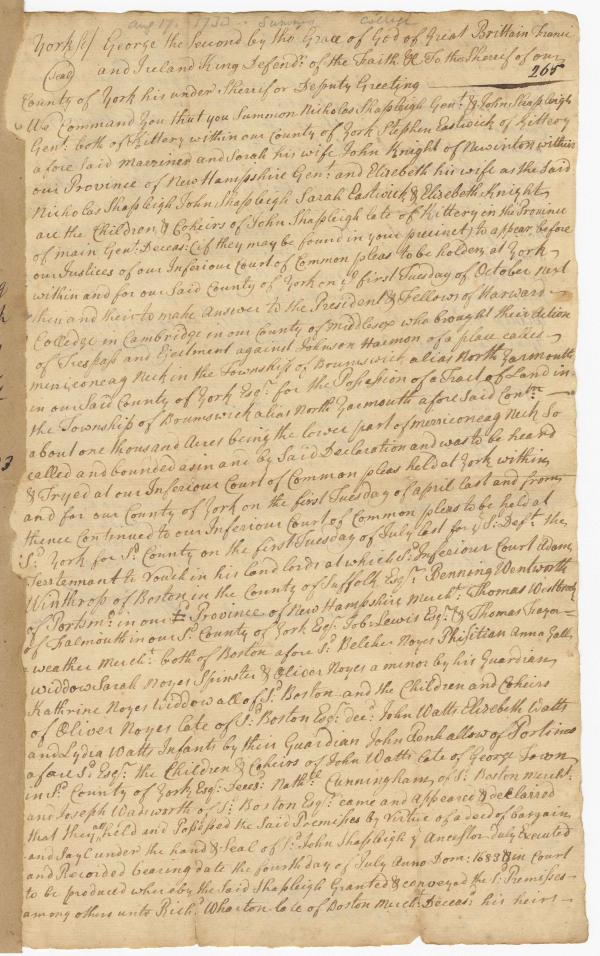 Aug 17. 1733 - Summons College
York ss/ George the Second by the Grace of God of Great Brittain France
(Seal) and Ireland King Defendr. of the Faith &c To the Sherif of our
265
County of York his under Sherif or Deputy Greeting
We Command You that you Summon Nicholas Shapleigh Gent. & John Shapleigh
Gent. both of Kittery within our County of York Stephen Eastwick of Kittery
afore Said Marriner and Sarah his wife John Knight of Newinton within
our Province of New Hampshire Gent. and Elizebeth his wife as the Said
Nicholas Shapleigh John Shapleigh Sarah Eastwick & Elizebeth Knight
are the Children & Coheirs of John Shapleigh late of Kittery on the Province
of main Gent. Deceasd. (if they may be found in your precinct) to appear before
our Justices of our Inferiour Court of Common pleas to be holden at York
within and for our Said County of York on ye first Tuesday of October next
then and their to make Answer to the President & Fellows of Harward
Colledge in Cambridge in our County of Middlesex who brought their Action
of Trespass and Ejectment against Johnson Harmon of a place called
merriconeag Neck in the Township of Brunswick alias North Yarmouth
in our Said County of York Esqr. for the Possession of a Tract of Land in
the Township of Brunswick alias North Yarmouth afore Said Contn.
about one thousand Acres being the lower part of merriconeag Neck So
called and bounded as in and by Said Declaration and was to be heard
& Tryed at our Inferiour Court of Common pleas held at York within
and for our County of York on the first Tuesday of april last and from
thence Continued to our Inferiour Court of Common pleas to be held at
Sd. York for Sd. County on the first Tuesday of July last for ye Sd. Deft. the
Terr tennant to Vouch in his land lords at which Sd. Inferiour Court Adam
Winthrop of Boston in the County of Suffolk Esqr. Benning Wentworth
of Portsmo. in our Province of New Hampshire Mercht. Thomas Westbrook
of Falmouth in our Sd. County of York Esqr. Job Lewis Esqr. & Thomas Fayer
weather Mercht. both of Boston afore Sd. Belcher Noyes Phisitian Anna
widdow Sarah Noyes Spinster & Oliver Noyes a minor by his Guardian
Kathrine Noyes Widdow all of Sd. Boston and the Children and Coheirs
of Oliver Noyes late of Sd. Boston Esqr. decd. John Watts Elizebeth Watts
and Lydia Watts Infants by their Guardian John Penhallow of Portsmo
afore Sd. Esqr. the Children & Coheirs of John Watts late of George Town
in Sd. County of York Esqr. Deceasd. Nathll. Cunningham of Sd. Boston mercht.
and Joseph Wadsworth of Sd. Boston Esqr. came and appeared & declared
that they all held and Possessed the Said Premises by Virtue of a deed of bargain
and Sayl under the hand & Seal of Sd. John Shapleigh ye Ancestor duly Executed
and Recorded bearing date the fourth day of July Anno Dom: 1683 & in Court
to be produced whereby the Said Shapleigh Granted & conveyed the Sd. Premisses
among others unto Richd. Wharton late of Boston Mercht. Deceasd. his heirs